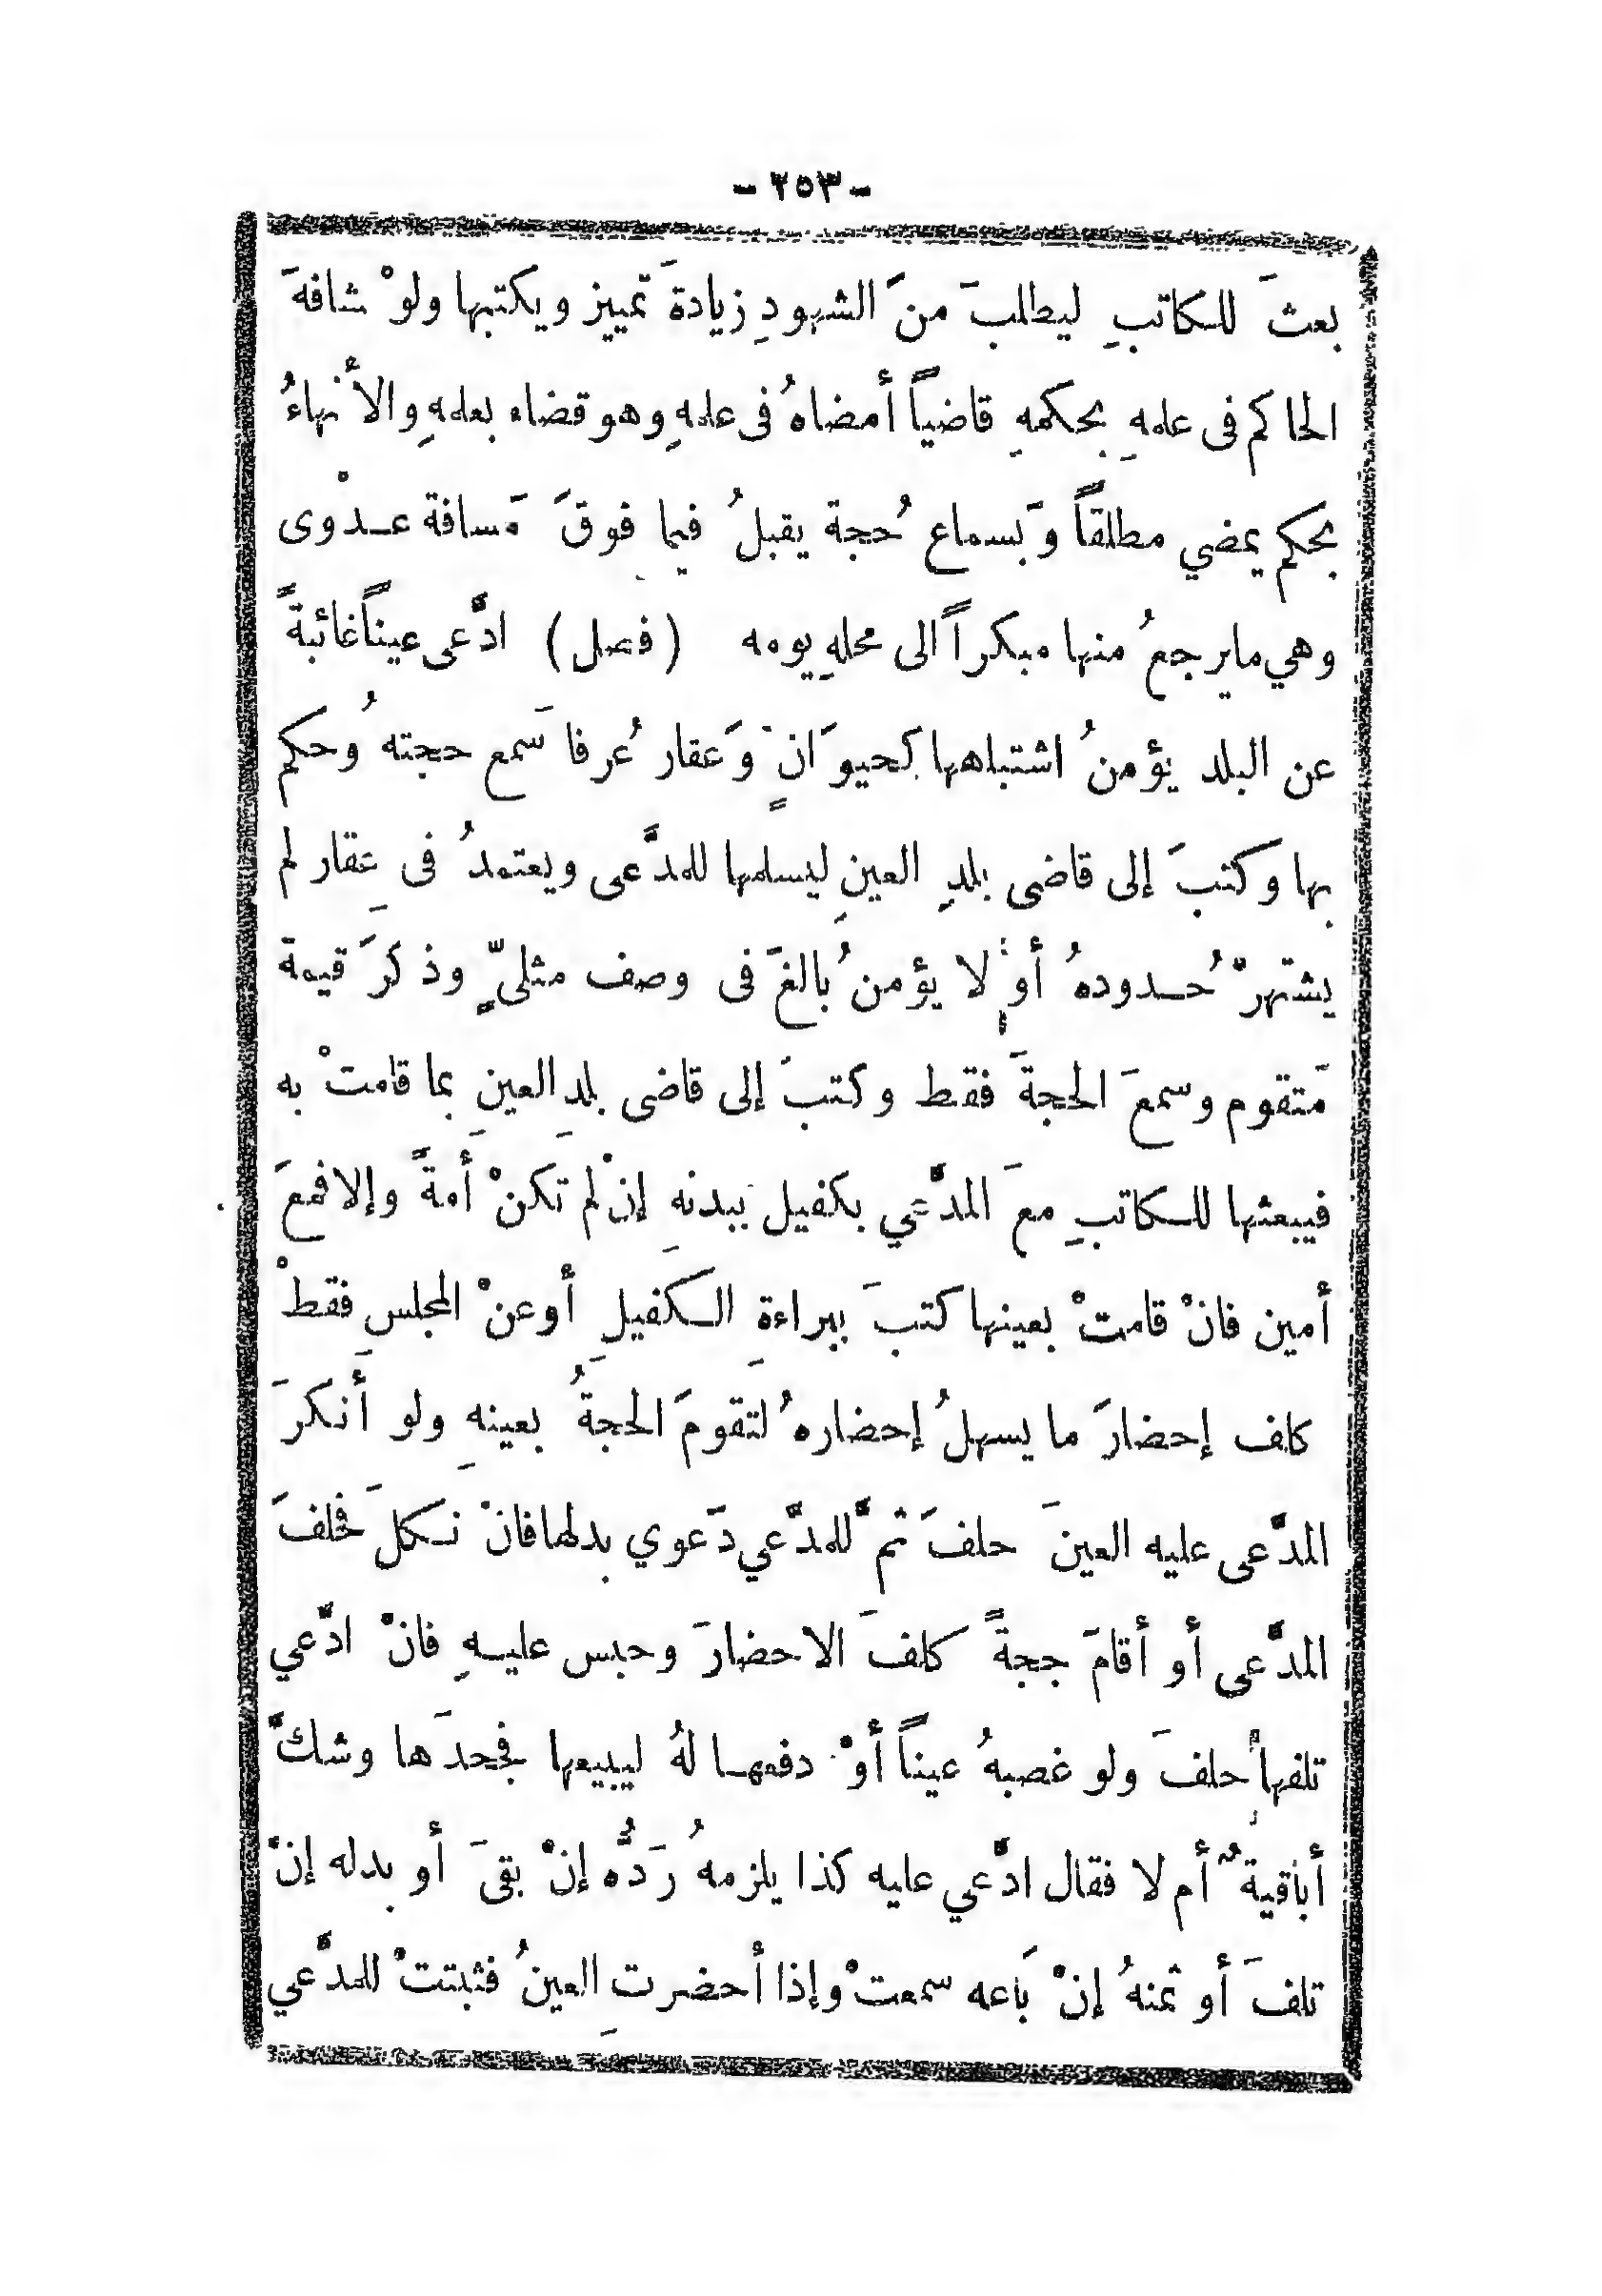 - ٢٥٣ -
بعثَ للكاتبِ ليطلبَ منَ الشهودِ زيادةَ تمييز ويكتبها ولوْ شافهَ
الحاكم فى علمهِ بحكمهِ قاضياً أمضاهُ فى علمهِ وهو قضاء بعلمهِ والأنهاءُ
بحكم يمضي مطلقاً وَبسماع حُجة يقبلُ فيما فوقَ مَسافة عـدْوى
وهي مايرجعُ منها مبكراً الى محلهِ يومه (فصل) ادَّعى عيناً غائبةً
عن البلد يؤمنُ اشتباهها كحيوَانٍ وَعقار عُرفا سَمع حجتهُ وحكم
بها وكتبَ إلى قاضى بلدِ العينِ ليسلمها للمدَّعى ويعتمدُ فى عِقار لم
يشتهرْ حُـدودهُ أو لا يؤمنُ بالغَ فى وصف مثلىٍّ وذكرَ قيمة
مَتقوم وسمعَ الحجةَ فقط وكتبَ إلى قاضى بلدِ العينِ بما قامتْ به
فيبعثها للـكاتبِ معَ المدَّعي بكفيل ببدنهِ إنْ لم تكنْ أمةً وإلا فمعَ
أمين فانْ قامتْ بعينها كتبَ ببراءةِ الـكفيلِ أوعنْ المجلسِ فقطْ
كلف إحضارَ ما يسهلُ إحضارهُ لتقومَ الحجةُ بعينهِ ولو أنكرَ
المدَّعى عليه العينَ حلفَ ثمَّ للمدَّعي دَعوي بدلها فانْ نـكلَ فحلفَ
المدَّعى أو أقامَ حجةً كلفَ الاحضارَ وحبس عليـهِ فانْ ادَّعي
تلفها حلفَ ولو غصبهُ عيناً أوْ دفعهـا لهُ ليبيعها فجحدَها وشكَّ
أباقيةٌ أم لا فقال ادَّعي عليه كذا يلزمهُ رَدُّه إنْ بقىَ أو بدله إنْ
تلفَ أو ثمنهُ إنْ بَاعه سمعتْ وإذا أحضرتِ العينُ فثبتتْ للمدَّعي